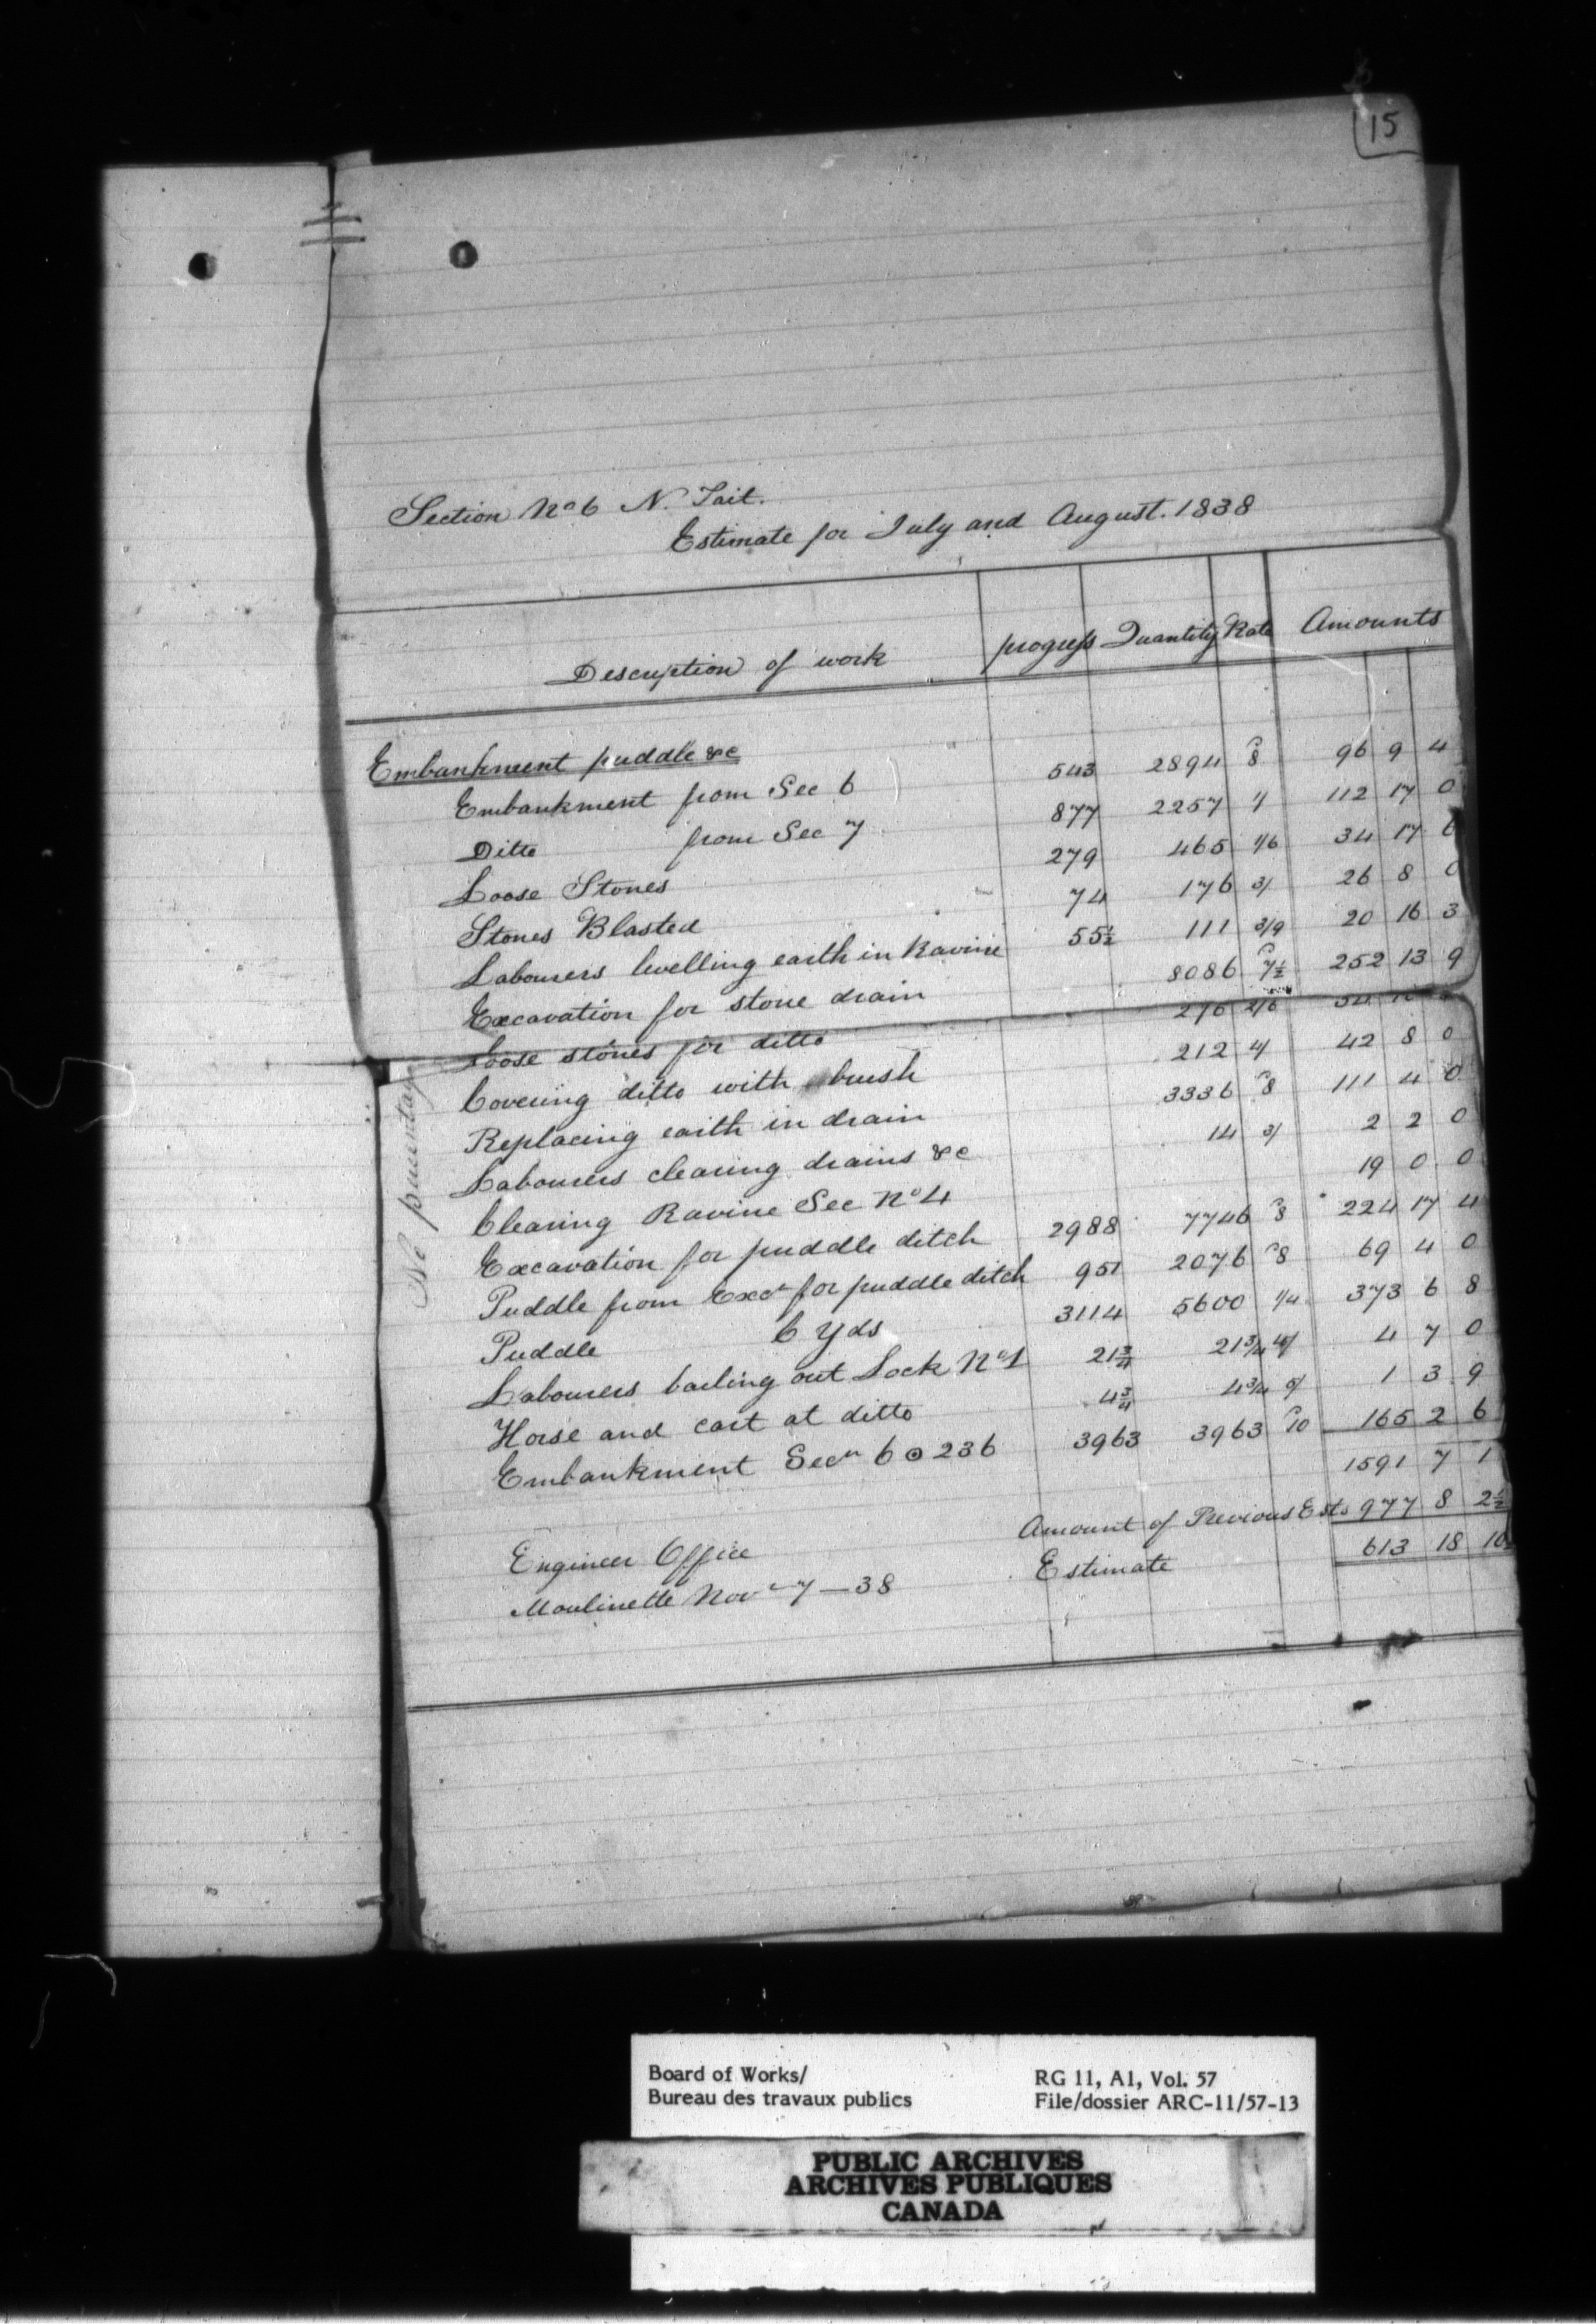 15
Section No 6 N. Tait.
Estimate for July and August. 1838
Description of work progress Quantity Rate Amounts
Embankment puddle &c
Embankment from Sec 6 543 2894 8 96 9 4
Ditto from Sec 7 877 2257 1/ 112 17 0
Loose Stones 279 465 1/6 34 17 6
Stones Blasted 74 176 3/ 26 8 0
Labourers levelling earth in Ravine 55½ 111 3/9 20 16 3
Excavation for stone drain 8086 7½ 252 13 9
Loose stones for ditto 276 2/6 34
Covering ditto with brush 212 4/ 42 8 0
Replacing earth in drain 3336 8 111 4 0
Labourers clearing drains &c 14 3/ 2 2 0
Clearing Ravine Sec No 4 19 0 0
Excavation for puddle ditch 2988 7746 8 224 17 4
Puddle from Excn for puddle ditch 951 2076 8 69 4 0
Puddle C Yds 3114 5600 1/4 373 6 8
Labourers bailing out Lock No 1 21¾ 21¾ 4/ 4 7 0
Horse and cart at ditto 4¾ 4¾ 5/ 1 3 9
Embankment Secn 6 @ 236 3963 3963 10 165 2 6
1591 7 1
Amount of Previous Ests 977 8 2½
Estimate 613 18 10
Engineer Office
Moulinette Novr 7 — 38
Board of Works/
Bureau des travaux publics
RG 11, A1, Vol. 57
File/dossier ARC-11/57-13
PUBLIC ARCHIVES
ARCHIVES PUBLIQUES
CANADA